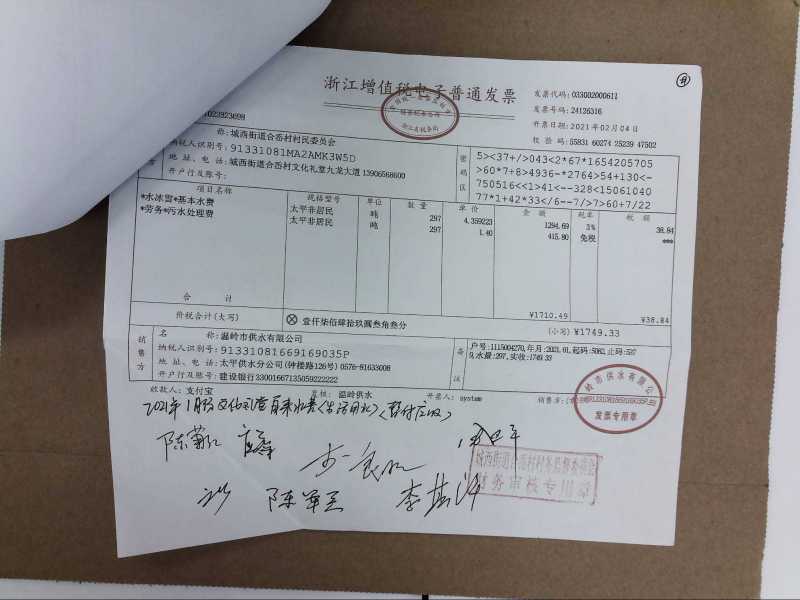 浙江增值税电子普通发票
发票代码: 033002000611
发票号码: 24126316
开票日期: 2021年02月04日
校 验 码: 55831 60274 25239 47502
称: 城西街道合岙村村民委员会
纳税人识别号: 91331081MA2AMK3W5D
地 址、电 话: 城西街道合岙村文化礼堂九龙大道 13906568600
开户行及账号:
密码区
5><37+/>043<2*67*1654205705
>60*7+8>4936-*2764>54+130<-
750516<<1>41<--328<15061040
77*1+42*33</6--7/>60+7/22
项目名称 规格型号 单位 数 量 单 价 金 额 税率 税 额
*水冰雪*基本水费 太平非居民 吨 297 4.359223 1294.69 3% 38.84
*劳务*污水处理费 太平非居民 吨 297 1.40 415.80 免税 ***
合 计 ¥1710.49 ¥38.84
价税合计(大写) ⊗ 壹仟柒佰肆拾玖圆叁角叁分 (小写) ¥1749.33
销售方
名 称: 温岭市供水有限公司
纳税人识别号: 91331081669169035P
地 址、电 话: 太平供水分公司(钟楼路126号) 0576-81633008
开户行及账号: 建设银行33001667135059222222
备注
户号:1115004270,年月:2021.01,起码:5082,止码:537
9,水量:297,实收:1749.33
收款人: 支付宝 复核: 温岭供水 开票人: system 销售方:
温岭市供水有限公司
91331081669169035P
发票专用章
2021年1月份文化礼堂自来水费(生活用水)(暂付应收)
城西街道合岙村村务监督委员会
财务审核专用章